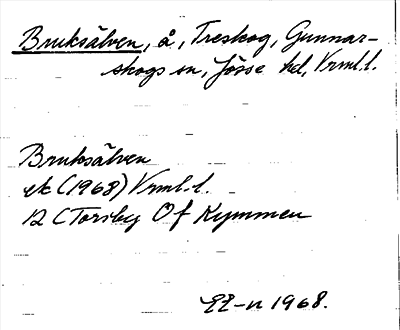 Bruksälven, å, Treskog, Gunnar-
skogs sn, Jösse hd, Vrml.l.
Bruksälven
ek (1968) Vrml.l.
12 C Torsby Of Kymmen
1968.